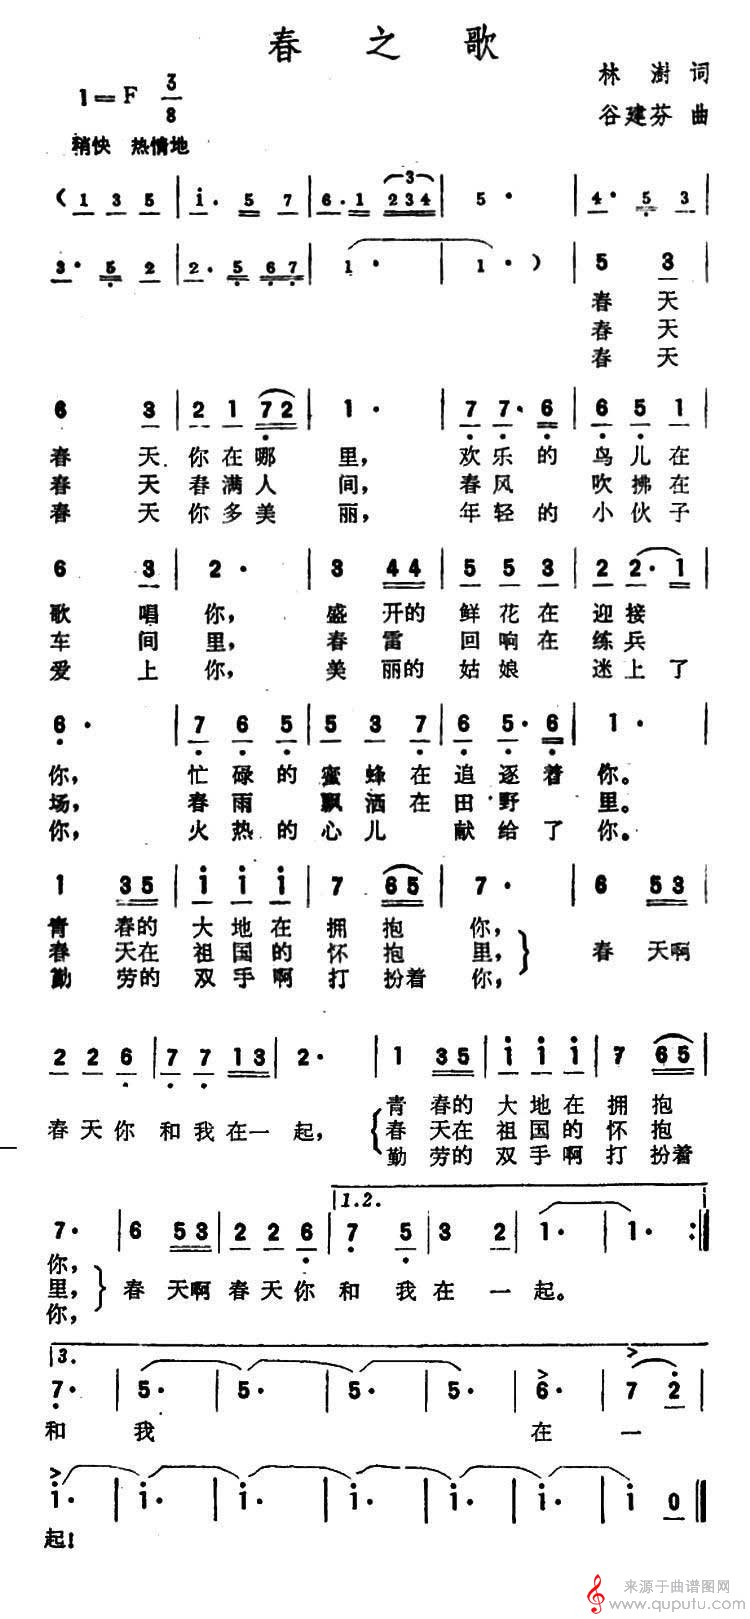 春之歌
林澍 词
1=F 3/8
谷建芬 曲
稍快 热情地
( 1 3 5 | i. 5 7 | 6. 1 234 | 5 · | 4. 5 3 |
3. 5 2 | 2. 5 6 7 | 1 · | 1 · ) | 5 3
春天
春天
春天
6 3 | 2 1 7 2 | 1 · | 7 7. 6 | 6 5 1
春天你在哪里, 欢乐的鸟儿在
春天春满人间, 春风吹拂在
春天你多美丽, 年轻的小伙子
6 3 | 2 · | 3 44 | 5 5 3 | 2 2. 1
歌唱你, 盛开的鲜花在迎接
车间里, 春雷回响在练兵
爱上你, 美丽的姑娘迷上了
6 · | 7 6 5 | 5 3 7 | 6 5. 6 | 1 ·
你, 忙碌的蜜蜂在追逐着你。
场, 春雨飘洒在田野里。
你, 火热的心儿献给了你。
1 35 | i i i | 7 65 | 7 · | 6 53
青春的大地在拥抱你,
春天在祖国的怀抱里, 春天啊
勤劳的双手啊打扮着你,
2 2 6 | 7 7 13 | 2 · | 1 35 | i i i | 7 65
青春的大地在拥抱
春天你和我在一起, 春天在祖国的怀抱
勤劳的双手啊打扮着
1.2.
7 · | 6 53 | 2 2 6 | 7 5 | 3 2 | 1 · | 1 · :|
你,
里, 春天啊春天你和我在一起。
你,
3.
7 · | 5 · | 5 · | 5 · | 5 · | 6 · | 7 2
和我在一
i · | i · | i · | i · | i · | i · | i 0
起!
来源于曲谱图网
www.quputu.com